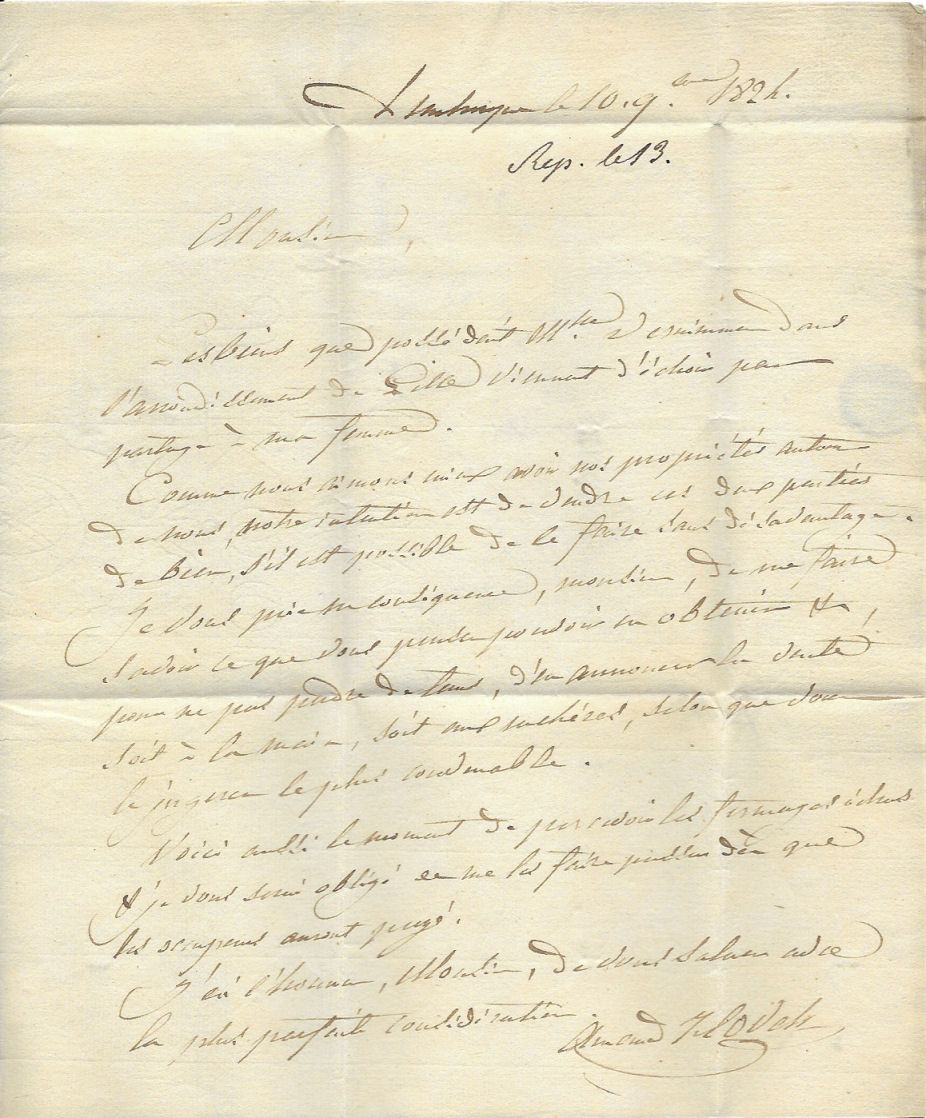 Dunkerque le 10. 9.bre 1824.
Rep. le 13.
Monsieur,
Les biens que possédait Mlle dans
l'arrondissement de Lille viennent d'échoir par
partage à ma femme.
Comme nous aimons mieux avoir nos propriétés autour
de nous, notre intention est de vendre ces deux parties
de bien, s'il est possible de le faire sans désavantage.
Je vous prie en conséquence, monsieur, de me faire
savoir ce que vous pensez pouvoir en obtenir &,
pour ne pas perdre de tems, d'en annoncer la vente
soit à la main, soit aux enchères, selon que vous
le jugerez le plus convenable.
Voici aussi le moment de percevoir les fermages échus
& je vous serai obligé de me les faire passer dès que
les occupeurs auront payé.
J'ai l'honneur, Monsieur, de vous saluer avec
la plus parfaite considération.
Armand